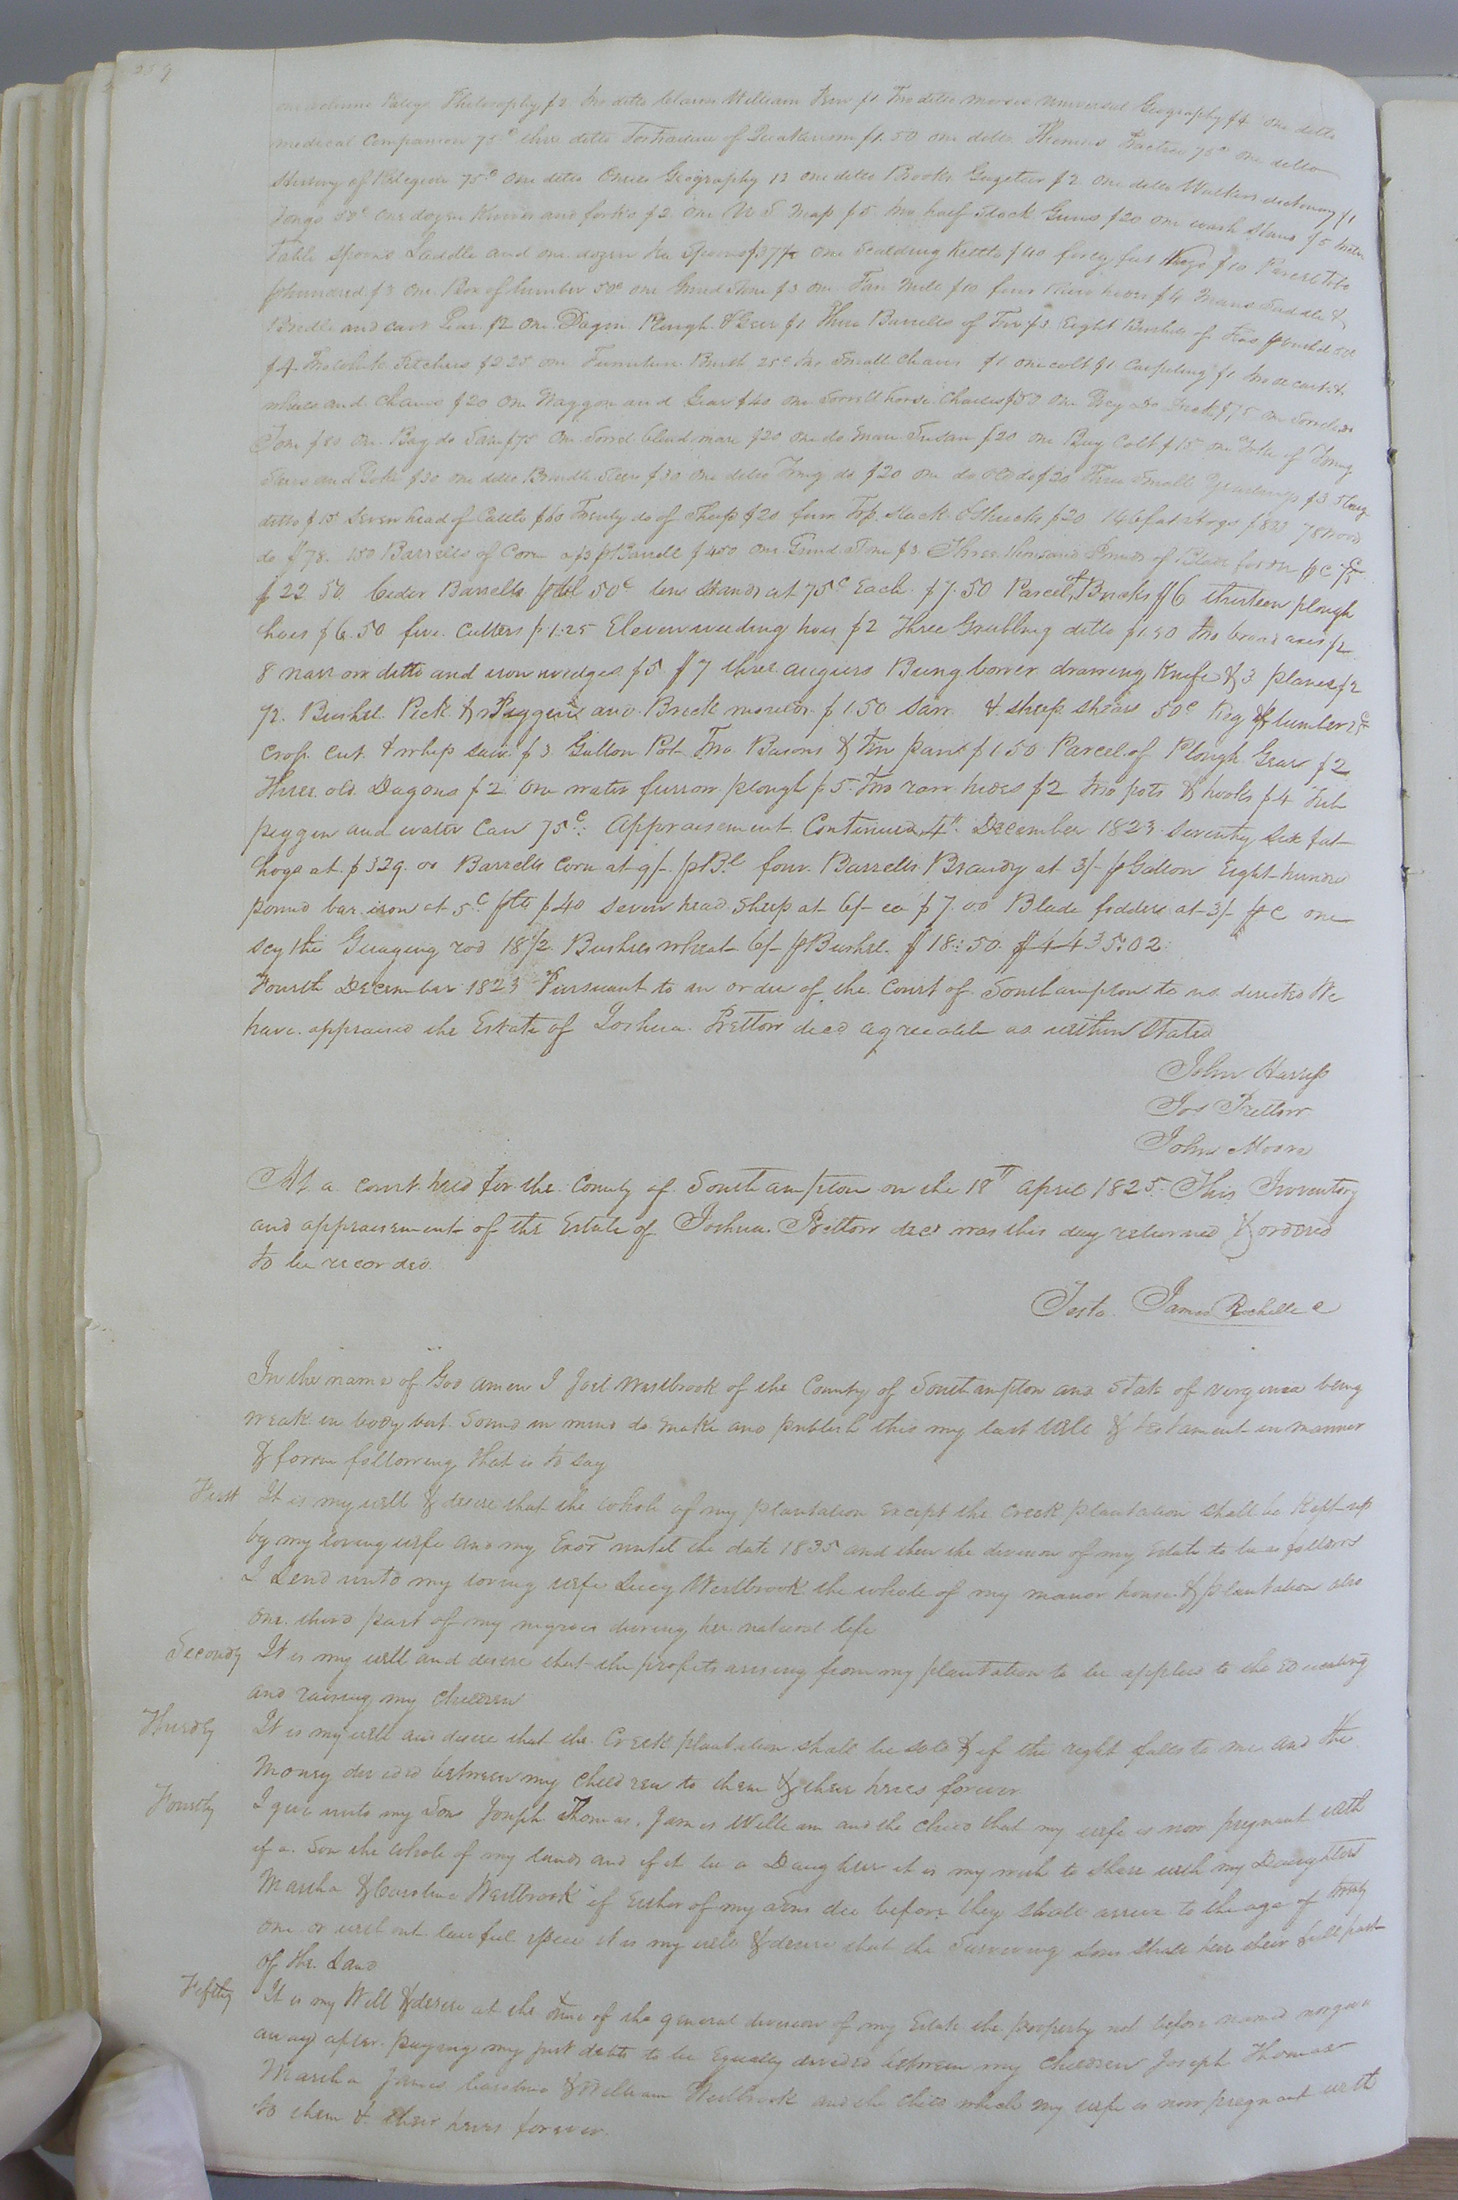 259
one volume Paleys Philosophy $2 two ditto William $1 Two ditto morses universal Geography $4 one ditto
medical Companion 75c three ditto Portraiture of Quakerism $1.50 one ditto Thomas Practice 75c one ditto
History of Religion 75c one ditto Geography 12 one ditto Brooks Gazetteer $2 one ditto Walkers dictionary $1
Tongs 50c one dozen Knives and forks $2 one U S map $5 two half Stock Guns $20 one wash stand $5
Table spoons Laddle and one dozen tea Spoons $37 one Scalding Kettle $40 forty fat Hogs $10 Parcel
hundred $3 one Box of lumber 50c one Grind Stone $3 one Fan mill $10 four hoes $4 Saddle &
Bridle and cart Gear $2 one Dagon Plough & Gear $1 Three Barrells of Tar $3 Eight Bushels of Peas
$4 Two white Pitchers $2 25 one Furniture Brush 25c two Small Chairs $1 one colt $1 Carpeting $1 two ox cart &
wheels and Chains $20 one Waggon and Gear $40 one Sorrell horse Charles $50 one Bay Do $75 one Sorrel do
Tom $80 one Bay do Sam $75 one Sorrel blind mare $20 one do mare Susan $20 one Bay Colt $15 one Yoke of Young
Steers and Yoke $30 one ditto Brindle Steers $30 one ditto Young do $20 one do old do $20 Three Small Yearlings $3
ditto $15 Seven head of Cattle $60 Twenty do of Sheep $20 four Top Stack & Shucks $20 146 fat Hogs $823 78
do $78. 150 Barrells of Corn a $3 p Barrell $450 one Grind Stone $3 Three thousand Pounds of Blade fodder p C 75c
$22.50 Cider Barrells p 50c ten Stands at 75c Each $7.50 Parcel Bricks $6 thirteen plough
hoes $6.50 five Cutters $1.25 Eleven weeding hoes $2 Three Grubbing ditto $1.50 two broad axes $2
8 narrow ditto and iron wedges $5 $7 three augurs Bung borer drawing Knife & 3 planes $2
1/2 Bushel Peck & Piggin and Brick moulds $1.50 Saw & sheep shears 50c Keg & lumber
Cross Cut & whip saw $3 Gallon Pot Two Basons & tin pans $1.50 Parcel of Plough Gear $2
Three old Dagons $2 one water furrow plough $5 Two raw hides $2 two pots & hooks $4
piggin and water Can 75c: Appraisement Continued 4th December 1823 Seventy Six fat
hogs at $329.00 Barrells Corn at 9/- p Bl four Barrells Brandy at 3/- p Gallon Eight hundred
pound bar iron at 5c p lb $40 seven head Sheep at 6/- ea $7.00 Blade fodder at 3/- p C one
scythe Guaging rod 18 1/2 Bushels wheat 6/- p Bushel $18:50 $4435:02
Fourth December 1823 Pursuant to an order of the Court of Southampton to us directed We
have appraised the Estate of Joshua Pretlow decd agreeable as within Stated
John Harriss
Jos Pretlow
John Moore
At a Court held for the County of Southampton on the 18th April 1825. This Inventory
and appraisement of the Estate of Joshua Pretlow decd was this day returned & ordered
to be recorded.
Teste. James Rochelle C
In the name of God amen I Joel Westbrook of the County of Southampton and State of Virginia being
weak in body but Sound in mind do make and publish this my last Will & testament in manner
& form following that is to say
First It is my will & desire that the whole of my plantation except the Creek plantation shall be Kept up
by my loving wife and my Exor until the date 1835 and then the division of my Estate to be as follows
I Lend unto my loving wife Lucy Westbrook the whole of my manor house & plantation also
one third part of my negroes during her natural life
Secondly It is my will and desire that the profits arising from my plantation to be applied to the Educating
and raising my Children
Thirdly It is my will and desire that the Creek plantation shall be sold & if the right falls to me and the
Money divided between my Children to them & their heirs forever
Fourthly I give unto my Sons Joseph Thomas. James William and the Child that my wife is now pregnant with
if a Son the whole of my lands and if it be a Daughter it is my wish to share with my Daughters
Martha & Caroline Westbrook if Either of my sons die before they shall arrive to the age of twenty
one or without lawful issue it is my will & desire that the Surviving Sons Shall have their full part
of the Land
Fifthly It is my Will & desire at the time of the general division of my Estate the property not before named nor given
away after paying my just debts to be Equally divided between my Children Joseph Thomas
Martha James Caroline & William Westbrook and the Child which my wife is now pregnant with
to them & their heirs forever.